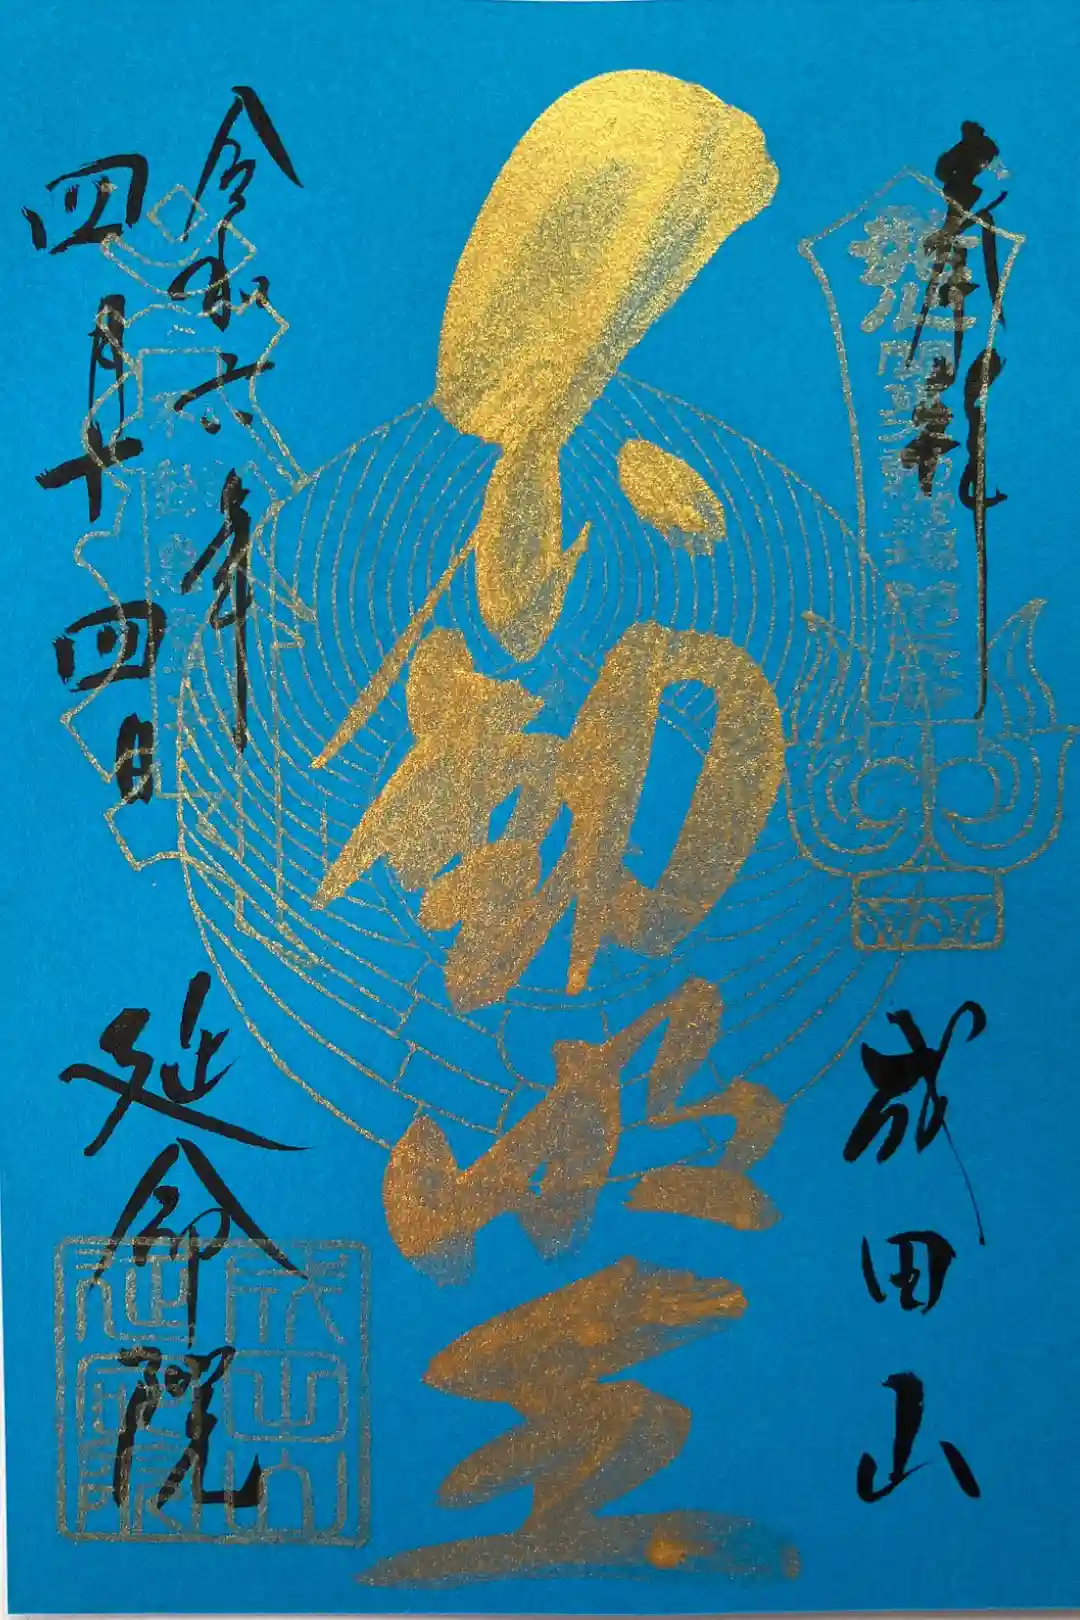 奉拝
成田山
不動明王
令和六年
四月十四日
延命院
成田山
延命院